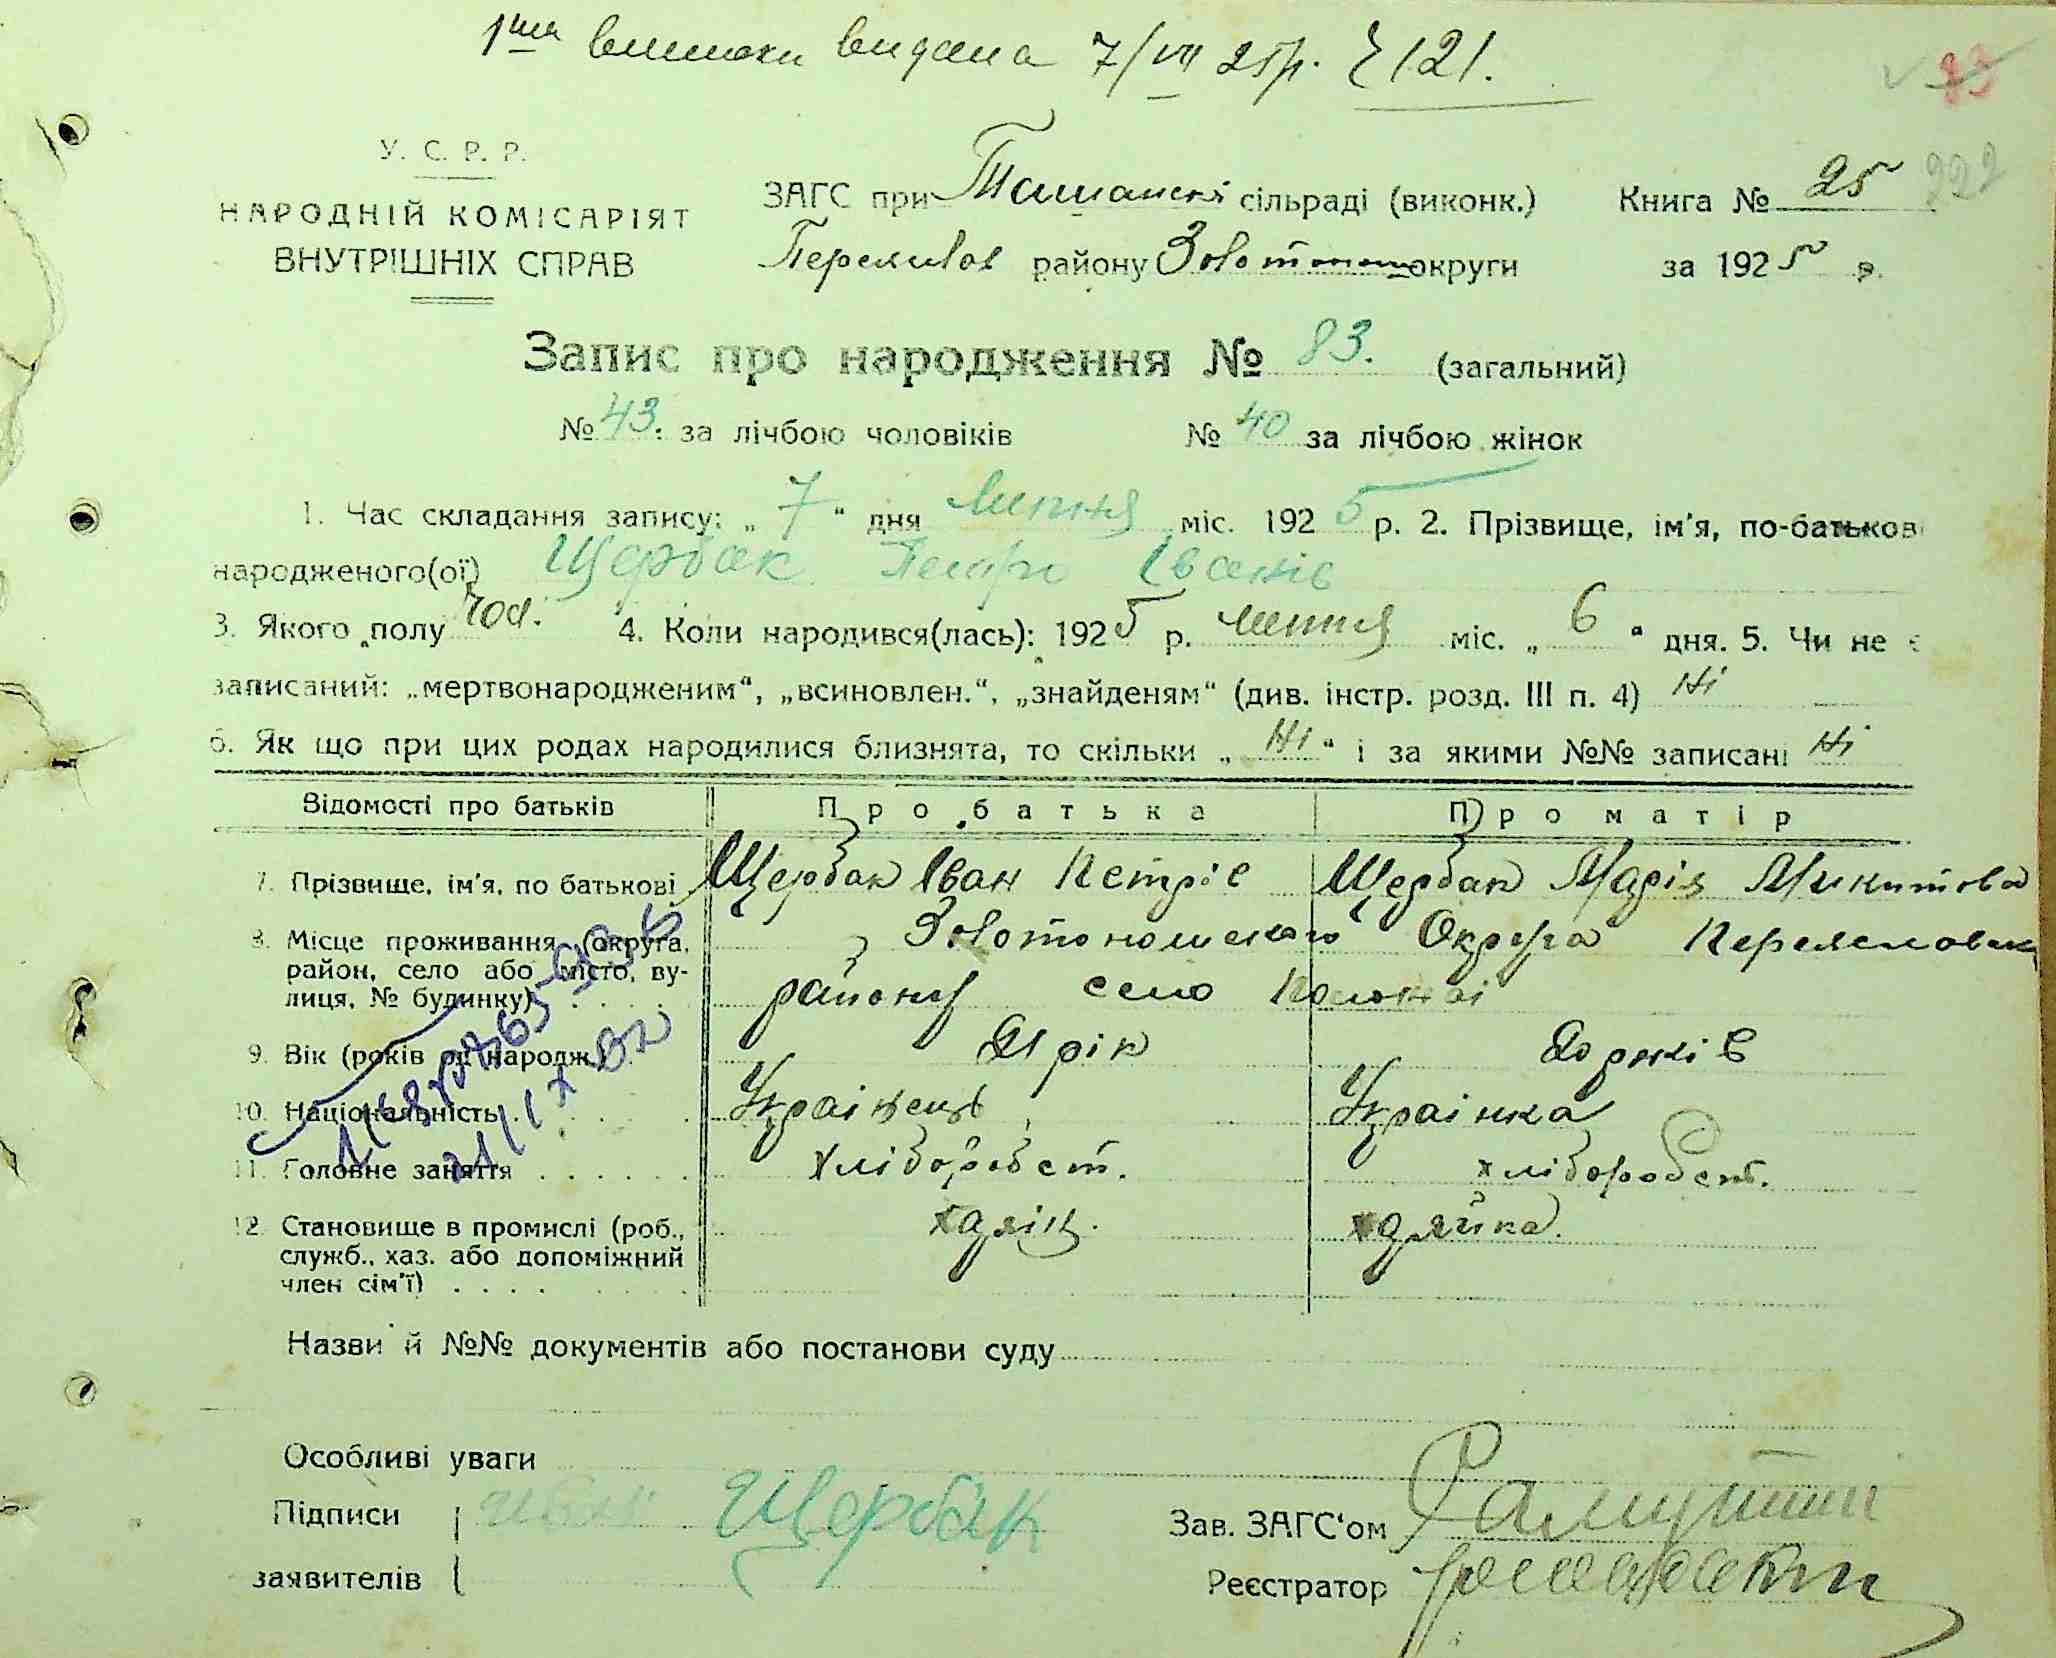 1ша виписка видана 7/VII 25р. 121.
83
У. С. Р. Р.
НАРОДНІЙ КОМІСАРІЯТ
ВНУТРІШНІХ СПРАВ
ЗАГС при Ташанскі сільраді (виконк.)
районy Золотоном округи
Книга № 25 222
за 1925 р.
Запис про народження № 83. (загальний)
№ 43. за лічбою чоловіків № 40 за лічбою жінок
1. Час складання запису: „ 7 “ дня Липня міс. 1925 р. 2. Прізвище, ім'я, по-батькові
народженого(ої) Щербак Петро Іванів
3. Якого полу чол. 4. Коли народився(лась): 1925 р. липня міс. „ 6 “ дня. 5. Чи не є
записаний: „мертвонародженим“, „всиновлен.“, „знайденям“ (див. інстр. розд. III п. 4) Ні
6. Як що при цих родах народилися близнята, то скільки „ Ні “ і за якими №№ записані Ні
Відомості про батьків Про батька Про матір
7. Прізвище, ім'я, по батькові Щербак Іван Петрів Щербак Марія Микитова
8. Місце проживання (округа, район, село або місто, вулиця, № будинку) Золотоношського Округа
району село
9. Вік (років од народж.) рік
10. Національність Українець Українка
11. Головне заняття хлібороб\ст. хліборобст.
12. Становище в промислі (роб.,
служб., хаз. або допоміжний
член сім'ї)
Назви й №№ документів або постанови суду
Особливі уваги
Підписи Иван Щербак
заявителів
Зав. ЗАГС'ом
Реєстратор